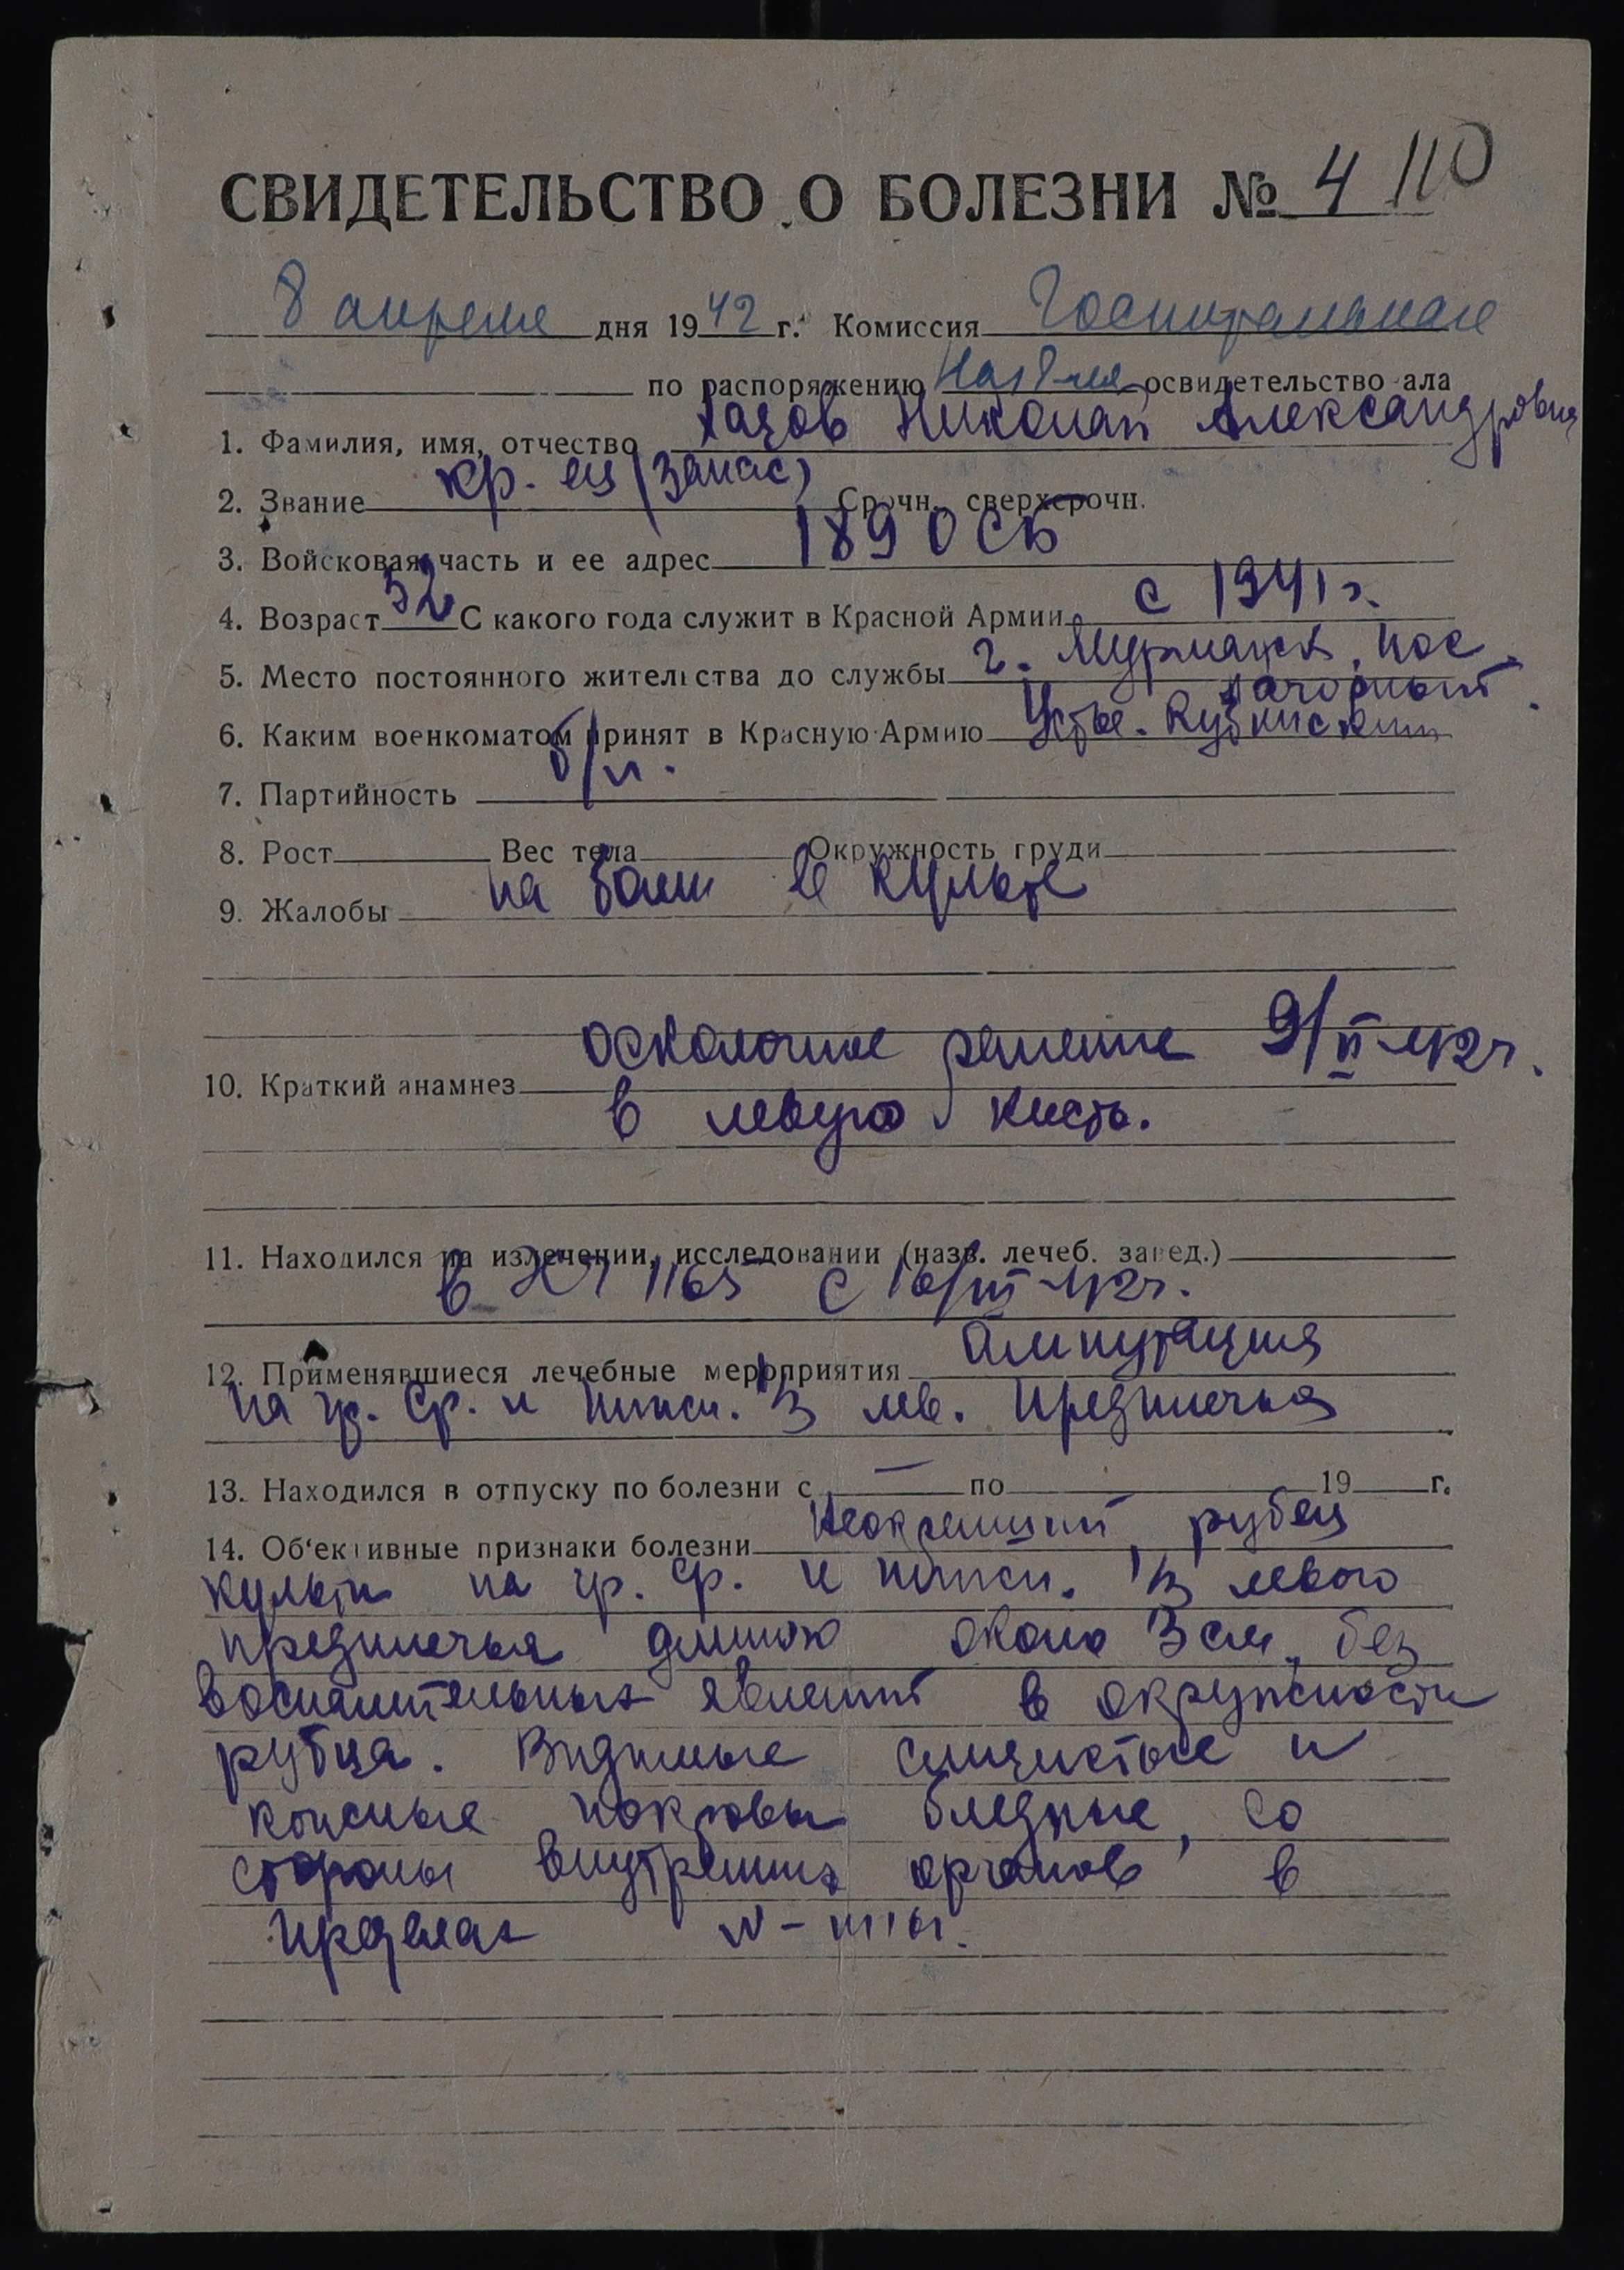 СВИДЕТЕЛЬСТВО О БОЛЕЗНИ № 4 110
8 апреля дня 1942 г. Комиссия Госпитальная
по распоряжению освидетельство ала
1. Фамилия, имя, отчество Николай Александрович
2. Звание кр. ец (запас) Срочн. сверхсрочн.
3. Войсковая часть и ее адрес 189 ОСБ
4. Возраст 32 С какого года служит в Красной Армии с 1941 г.
5. Место постоянного жительства до службы г. Мурманск, пос.
Нагорный.
6. Каким военкоматом принят в Красную Армию Устье-Кубинским
7. Партийность б/п.
8. Рост Вес тела Окружность груди
9. Жалобы на боли в культе
10. Краткий анамнез осколочное ранение 9/II-42 г.
в левую кисть.
11. Находился на излечении, исследовании (назв. лечеб. завед.)
в ЭГ 1165 с 16/III-42 г.
12. Применявшиеся лечебные мероприятия Ампутация
на гр. ср. и нижн. 1/3 лев. предплечья
13. Находился в отпуску по болезни с — по 19 г.
14. Об'ективные признаки болезни Неокрепший рубец
культи на гр. ср. и нижн. 1/3 левого
предплечья длиною около 3 см, без
воспалительных явлений в окружности
рубца. Видимые слизистые и
кожные покровы бледные, со
стороны внутренних органов в
пределах N-мы.